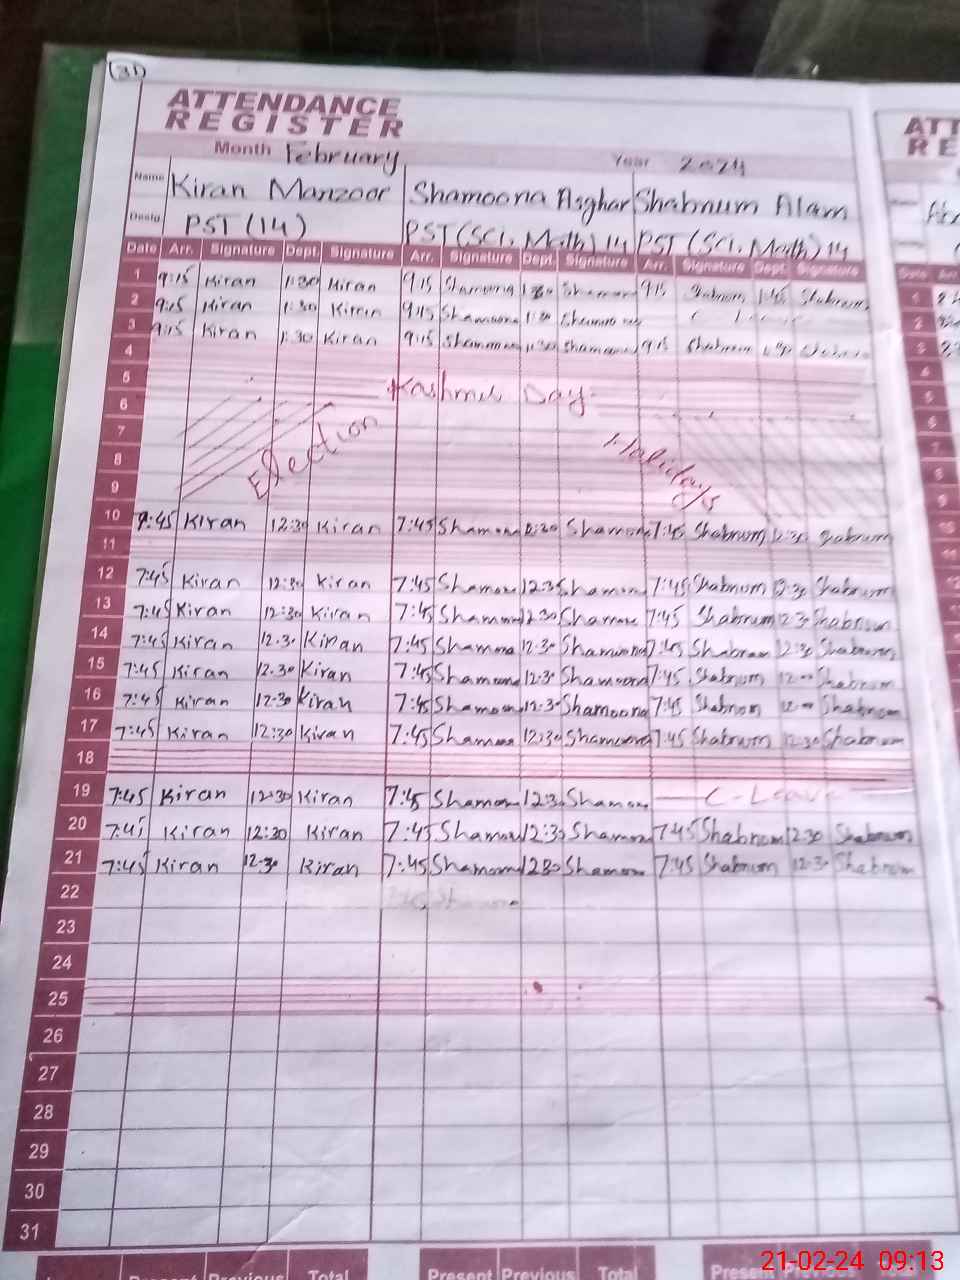 31
ATTENDANCE
REGISTER
Month February Year 2024
Name Kiran Manzoor Shamoona Asghar Shabnum Alam
Desig. PST (14) PST (Sci. Math) 14 PST (Sci. Math) 14
Date Arr. Signature Dept. Signature Arr. Signature Dept. Signature Arr. Signature Dept. Signature
1 9:15 Kiran 1:30 Kiran 9:15 Shamoona 1:30 Shamoona 9:15 Shabnum 1:45 Shabnum
2 9:15 Kiran 1:30 Kiran 9:15 Shamoona 1:30 Shamoona C Leave
3 9:15 Kiran 1:30 Kiran 9:15 Shamoona 1:30 Shamoona 9:15 Shabnum
4
5 Kashmir Day
6
7 Election Holidays
8
9
10 7:45 Kiran 12:30 Kiran 7:45 Shamoona 12:30 Shamoona 7:45 Shabnum 12:30 Shabnum
11
12 7:45 Kiran 12:30 Kiran 7:45 Shamoona 12:30 Shamoona 7:45 Shabnum 12:30 Shabnum
13 7:45 Kiran 12:30 Kiran 7:45 Shamoona 12:30 Shamoona 7:45 Shabnum 12:30 Shabnum
14 7:45 Kiran 12:30 Kiran 7:45 Shamoona 12:30 Shamoona 7:45 Shabnum 12:30 Shabnum
15 7:45 Kiran 12:30 Kiran 7:45 Shamoona 12:30 Shamoona 7:45 Shabnum Shabnum
16 7:45 Kiran 12:30 Kiran 7:45 Shamoona 12:30 Shamoona 7:45 Shabnum Shabnum
17 7:45 Kiran 12:30 Kiran 7:45 Shamoona 12:30 Shamoona 7:45 Shabnum 12:30 Shabnum
18
19 7:45 Kiran 12:30 Kiran 7:45 Shamoona 12:30 Shamoona C-Leave
20 7:45 Kiran 12:30 Kiran 7:45 Shamoona 12:30 Shamoona 7:45 Shabnum 12:30 Shabnum
21 7:45 Kiran 12:30 Kiran 7:45 Shamoona 12:30 Shamoona 7:45 Shabnum 12:30 Shabnum
22
23
24
25
26
27
28
29
30
31
Present Previous Total Present Previous Total Present Previous
21-02-24 09:13